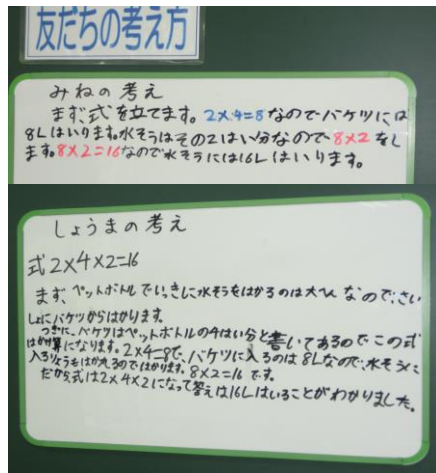 友だちの考え方
みねの考え
まず、式を立てます。2×4=8なのでバケツには
8Lはいります。水そうはその2はい分なので8×2をし
ます。8×2=16なので水そうには16Lはいります。
しょうまの考え
式2×4×2=16
まず、ペットボトルでいっきに水そうをはかるのは大へんなので、さい
しょにバケツからはかります。
つぎに、バケツはペットボトルの4はい分と書いてあるので、この式
はかけ算になります。2×4=8で、バケツに入るのは8Lなので、水そうに
入るりょうもはかれるのではかります。8×2=16です。
だから、式は2×4×2になって答えは16Lはいることがわかりました。